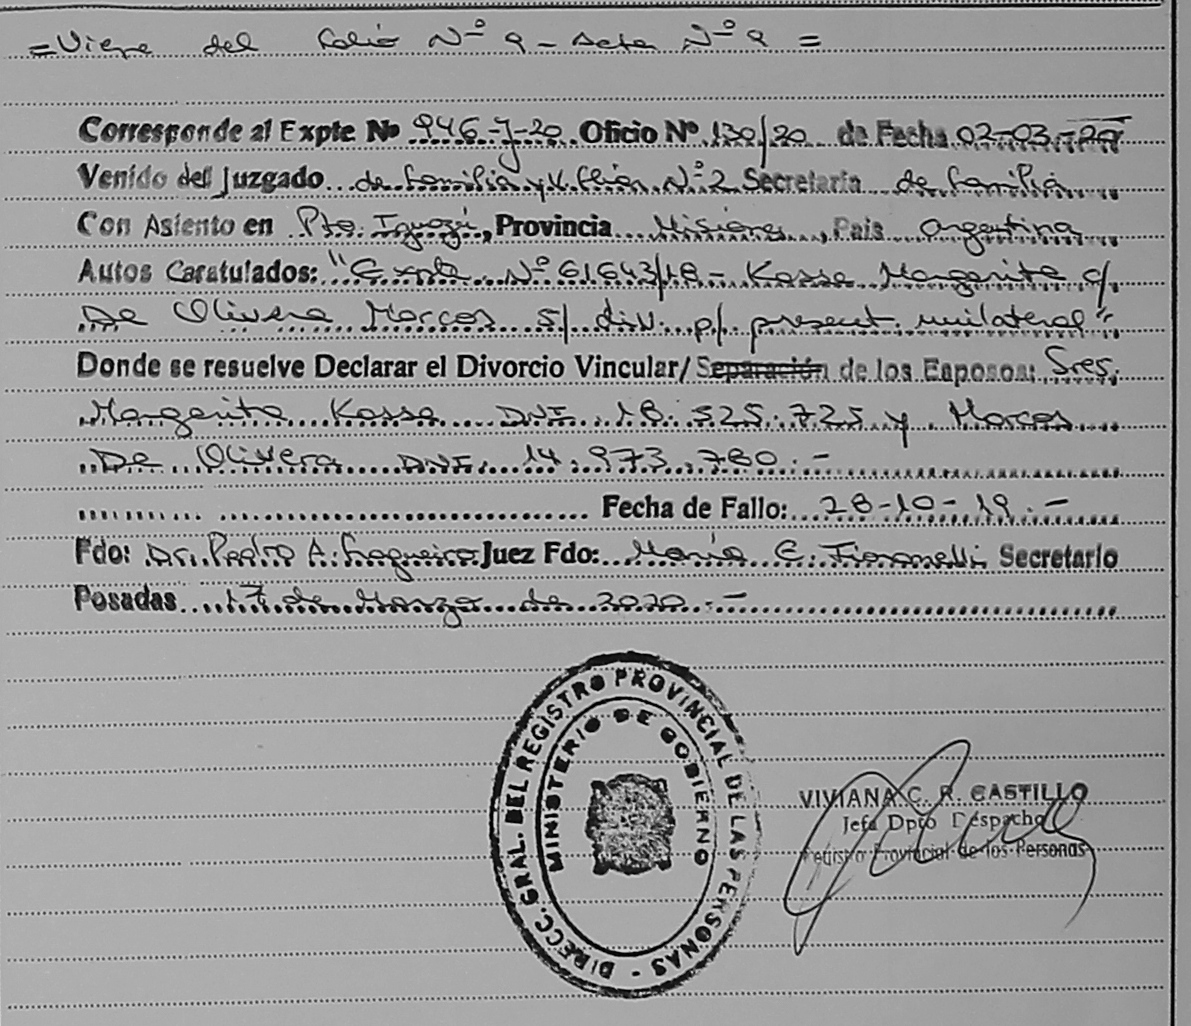 =Viene del Folio Nº 9 - Acta Nº 9 =
Corresponde al Expte Nº 946-J-20 Oficio Nº 130/20 de Fecha 02-03-20
Venido del Juzgado de Familia y V. Fliar. Nº 2 Secretaria de Familia
Con Asiento en Pto. Iguazú, Provincia Misiones, Pais Argentina
Autos Caratulados: "Expte. Nº 61643/18 - Kassa Margarita c/
De Olivera Marcos s/ div. p/ present. unilateral"
Donde se resuelve Declarar el Divorcio Vincular/ Separación de los Esposos: Sres.
Margarita Kassa DNI 18.525.725 y Marcos
De Olivera DNI. 14.973.780.-
Fecha de Fallo: 28-10-19.-
Fdo: Dr. Pedro A. Juez Fdo: María E. Fioranelli Secretario
Posadas 17 de Marzo de 2020.-
DIRECC. GRAL. DEL REGISTRO PROVINCIAL DE LAS PERSONAS -
MINISTERIO DE GOBIERNO
VIVIANA C. R. CASTILLO
Jefa Dpto Despacho
Registro Provincial de los Personas